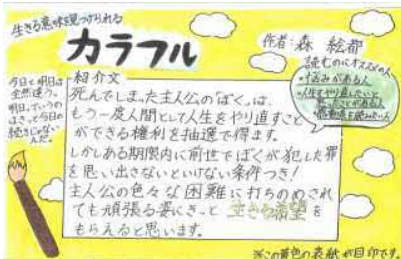 生きる意味を見つけられる
カラフル
作者：森 絵都
読むのにオススメの人
・悩みがある人
・人生をやり直したいと
思ったことがある人
・感動系を読みたい人
今日と明日は
全然違う。
明日っていうの
はきっと今日の
続きじゃない
んだ。
紹介文
死んでしまった主人公の「ぼく」は、
もう一度人間として人生をやり直すこと
ができる権利を抽選で得ます。
しかしある期限内に前世でぼくが犯した罪
を思い出さないといけない条件つき！
主人公の色々な困難に打ちのめされ
ても頑張る姿にきっと生きる希望を
もらえると思います。
※この黄色の表紙が目印です。